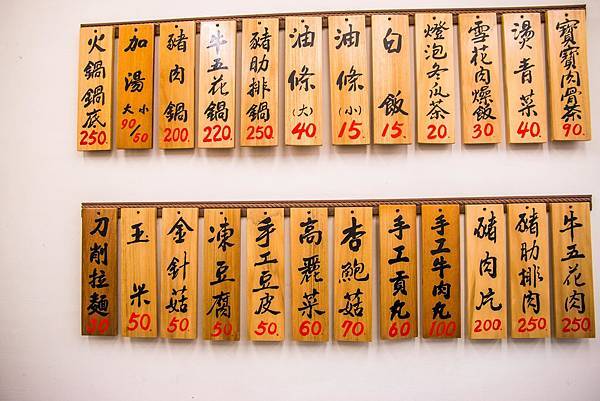 火鍋鍋底 250.
加湯 大90/小60
豬肉鍋 200.
牛五花鍋 220.
豬肋排鍋 250.
油條(大) 40
油條(小) 15.
白飯 15.
燈泡冬瓜茶 20.
雪花肉燥飯 30
燙青菜 40.
寶寶肉骨茶 90.
刀削拉麵 30
玉米 50.
金針菇 50.
凍豆腐 50.
手工豆皮 50.
高麗菜 60
杏鮑菇 70
手工貢丸 60
手工牛肉丸 100
豬肉片 200.
豬肋排肉 250.
牛五花肉 250